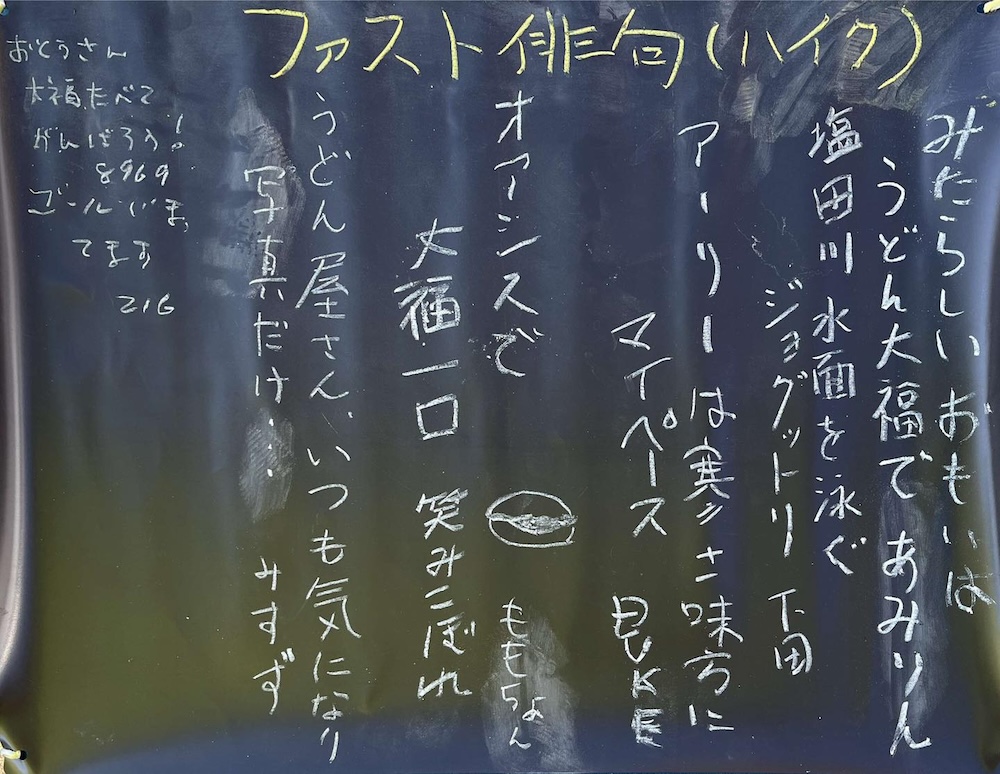 ファスト俳句(ハイク)
みたらしいおもいは
うどん大福であみりん
塩田川 水面を泳ぐ
ジョグットリ 下田
アーリーは寒さ味方に
マイペース
オアシスで
ももちょん
大福一口 笑みこぼれ
うどん屋さん、いつも気になり
写真だけ… みすず
おとうさん
大福たべて
がんばろう!
8969
ゴールでま
てます
216